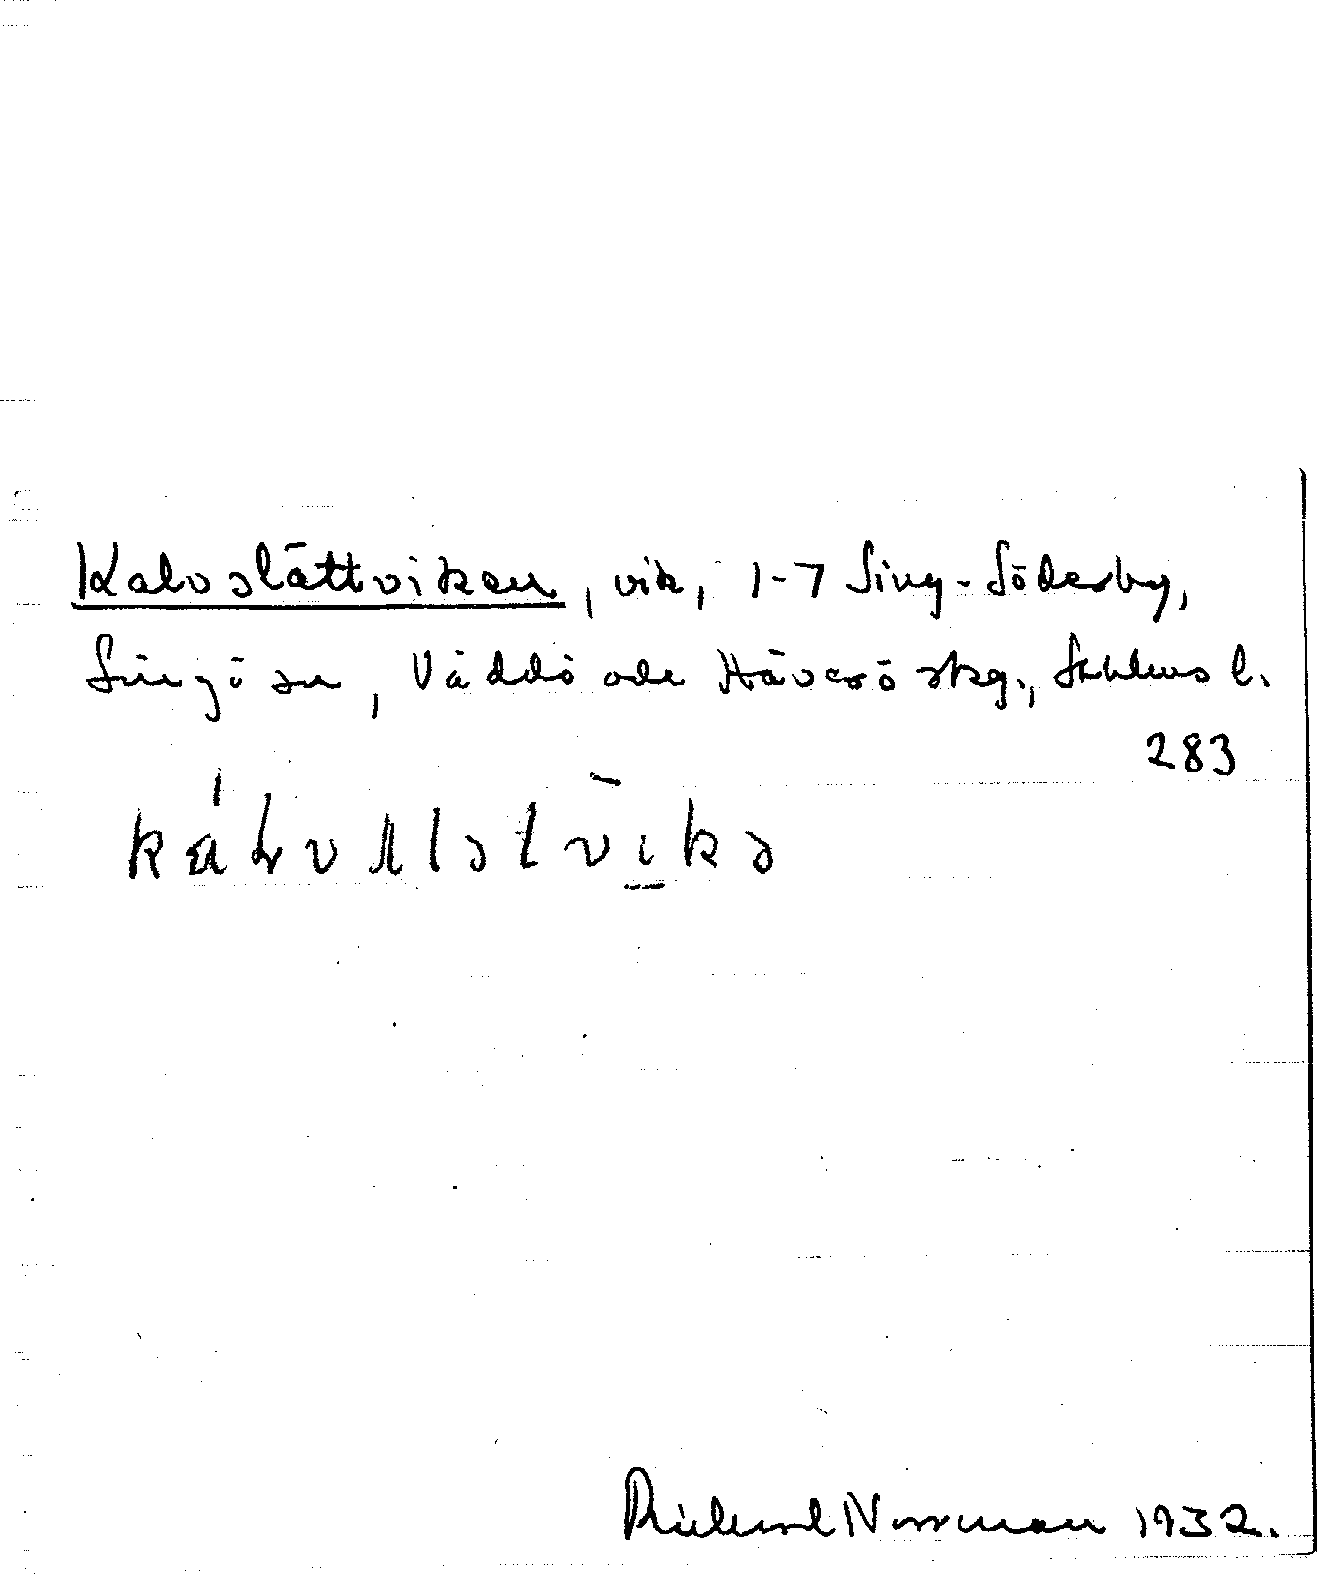 Kalvslättviken, vik, 1-7 Sing-Söderby,
Singö sn, Väddö och Häverö skg., Sthlms l.
283
Richard Norrman 1932.